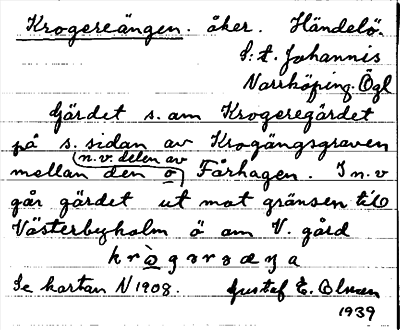 Krogereängen. åker. Händelö.
S:t. Johannis
Norrköping. Ögl
Gärdet s. am Krogeregärdet
på s. sidan av Krogängsgraven
(n.v. delen av
mellan den o) Fårhagen. I n.v
går gärdet ut mot gränsen till
Västerbyholm ö am V. gård
Se kartan N 1908. Gustaf E. Olsson
1939